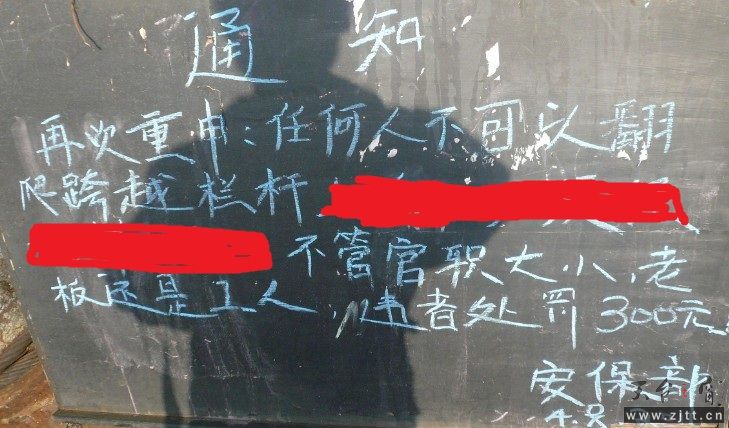 通知
再次重申:任何人不可以翻
爬跨越栏杆
不管官职大小,老
板还是工人,违者处罚300元
安保部
4.8
www.zjtt.cn